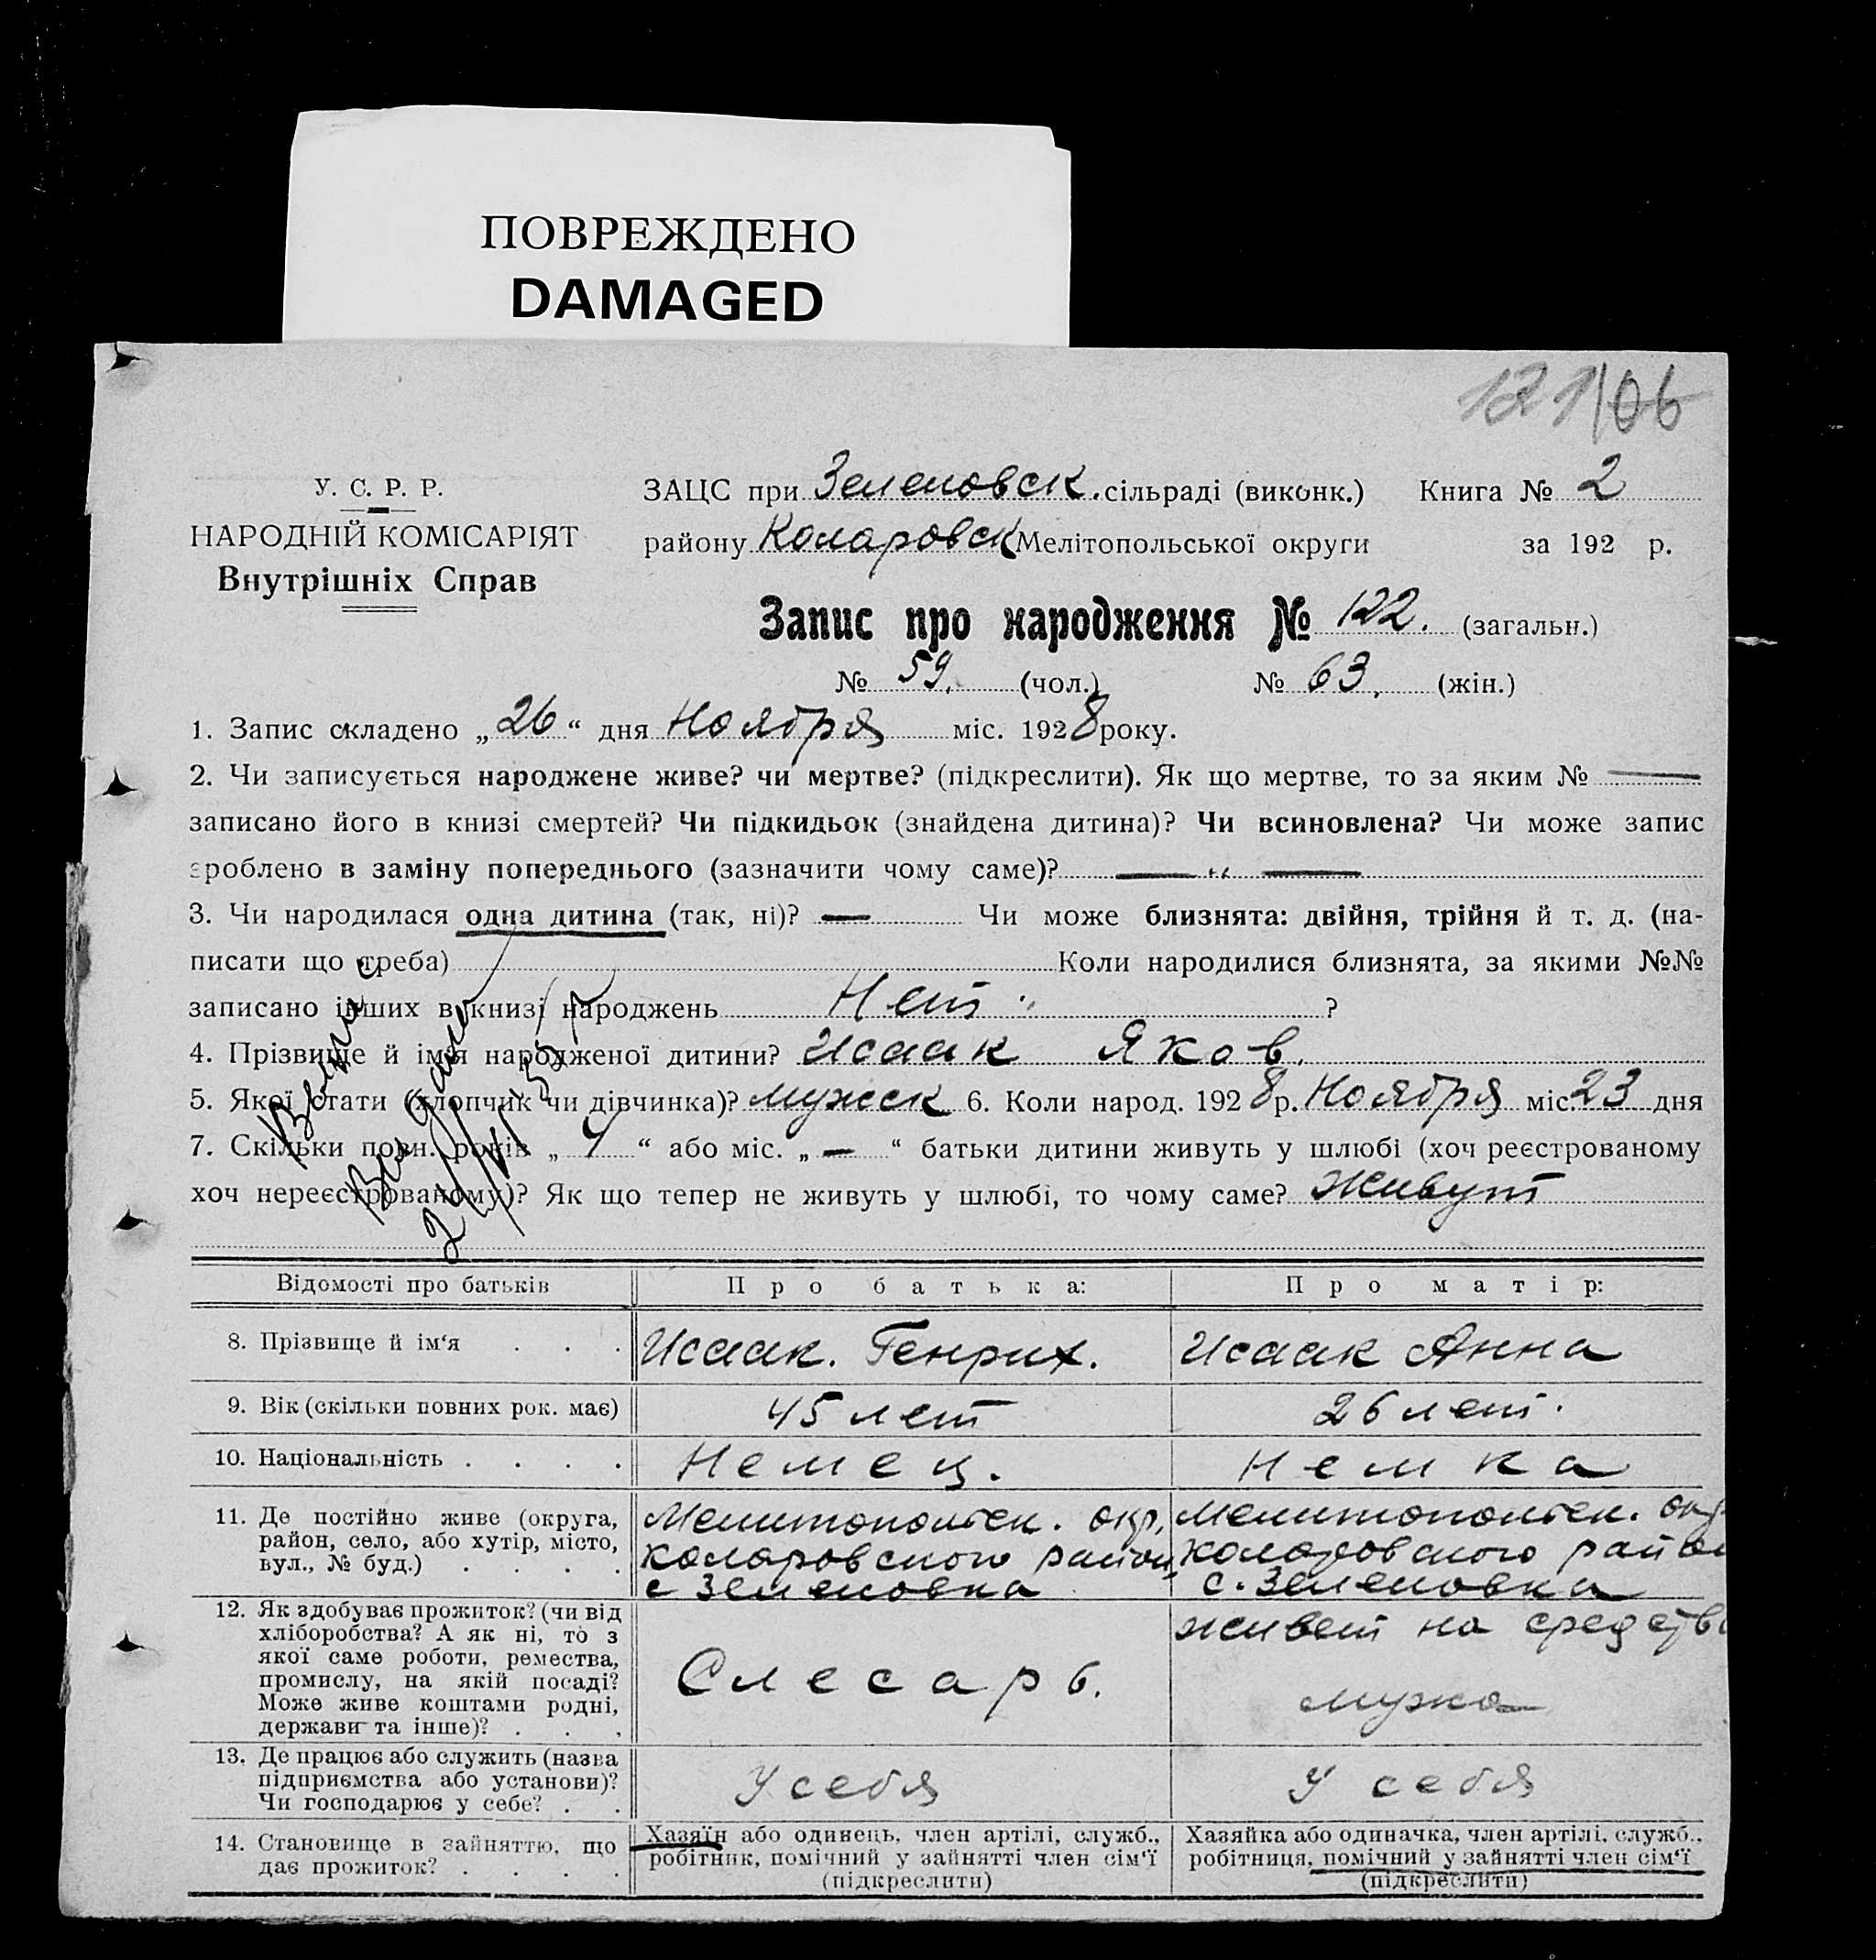 ПОВРЕЖДЕНО
DAMAGED
121/06
У. С. Р. Р.
НАРОДНІЙ КОМІСАРІЯТ
Внутрішніх Справ
ЗАЦС при Зеленовск. сільраді (виконк.) Книга № 2
району Коларовск Мелітопольської округи за 192 р.
Запис про народження № 122. (загальн.)
№ 59. (чол.) № 63. (жін.)
1. Запис складено „26“ дня Ноября міс. 1928 року.
2. Чи записується народжене живе? чи мертве? (підкреслити). Як що мертве, то за яким № —
записано його в книзі смертей? Чи підкидьок (знайдена дитина)? Чи всиновлена? Чи може запис
зроблено в заміну попереднього (зазначити чому саме)? — „ —
3. Чи народилася одна дитина (так, ні)? — Чи може близнята: двійня, трійня й т. д. (на-
писати що треба) Коли народилися близнята, за якими №№
записано інших в книзі народжень Нет ?
4. Прізвище й імя народженої дитини? Исаак Яков.
5. Якої стати (хлопчик чи дівчинка)? мужск 6. Коли народ. 1928 р. Ноября міс. 23 дня
7. Скільки повн. років „ 4 “ або міс. „ — “ батьки дитини живуть у шлюбі (хоч реєстрованому
хоч нереєстрованому)? Як що тепер не живуть у шлюбі, то чому саме? Живут
Відомості про батьків Про батька: Про матір:
8. Прізвище й ім‘я . . . Исаак. Генрих. Исаак Анна
9. Вік (скільки повних рок. має) 45 лет 26 лет.
10. Національність . . . . Немец. Немка
11. Де постійно живе (округа,
район, село, або хутір, місто,
вул., № буд.) . . . .
Мелитопольск. окр.
Коларовского район,
с Зеленовка
Мелитопольск. окр
Коларовского район
с. Зеленовка
12. Як здобуває прожиток? (чи від
хліборобства? А як ні, то з
якої саме роботи, ремества,
промислу, на якій посаді?
Може живе коштами родні,
держави та інше)? . . .
Слесарь.
живет на средства
мужа
13. Де працює або служить (назва
підприємства або установи)?
Чи господарює у себе? . .
У себя
У себя
14. Становище в зайняттю, що
дає прожиток? . . . .
Хазяїн або одинець, член артілі, служб.,
робітник, помічний у зайнятті член сім‘ї
(підкреслити)
Хазяйка або одиначка, член артілі, служб.,
робітниця, помічний у зайнятті член сім‘ї
(підкреслити)